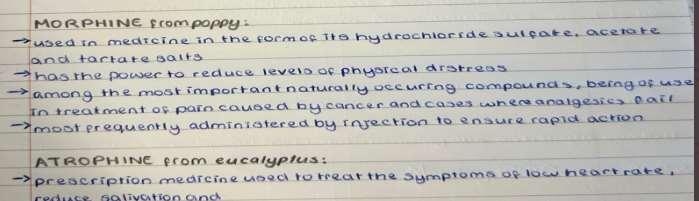 MORPHINE from poppy:
→ used in medicine in the form of its hydrochloride sulfate, acetate
and tartate salts
→ has the power to reduce levels of physical distress
→ among the most important naturally occuring compounds, being of use
in treatment of pain caused by cancer and cases where analgesics fail
→ most frequently administered by injection to ensure rapid action
ATROPHINE from eucalyptus:
→ prescription medicine used to treat the symptoms of low heart rate,
reduce salivation and